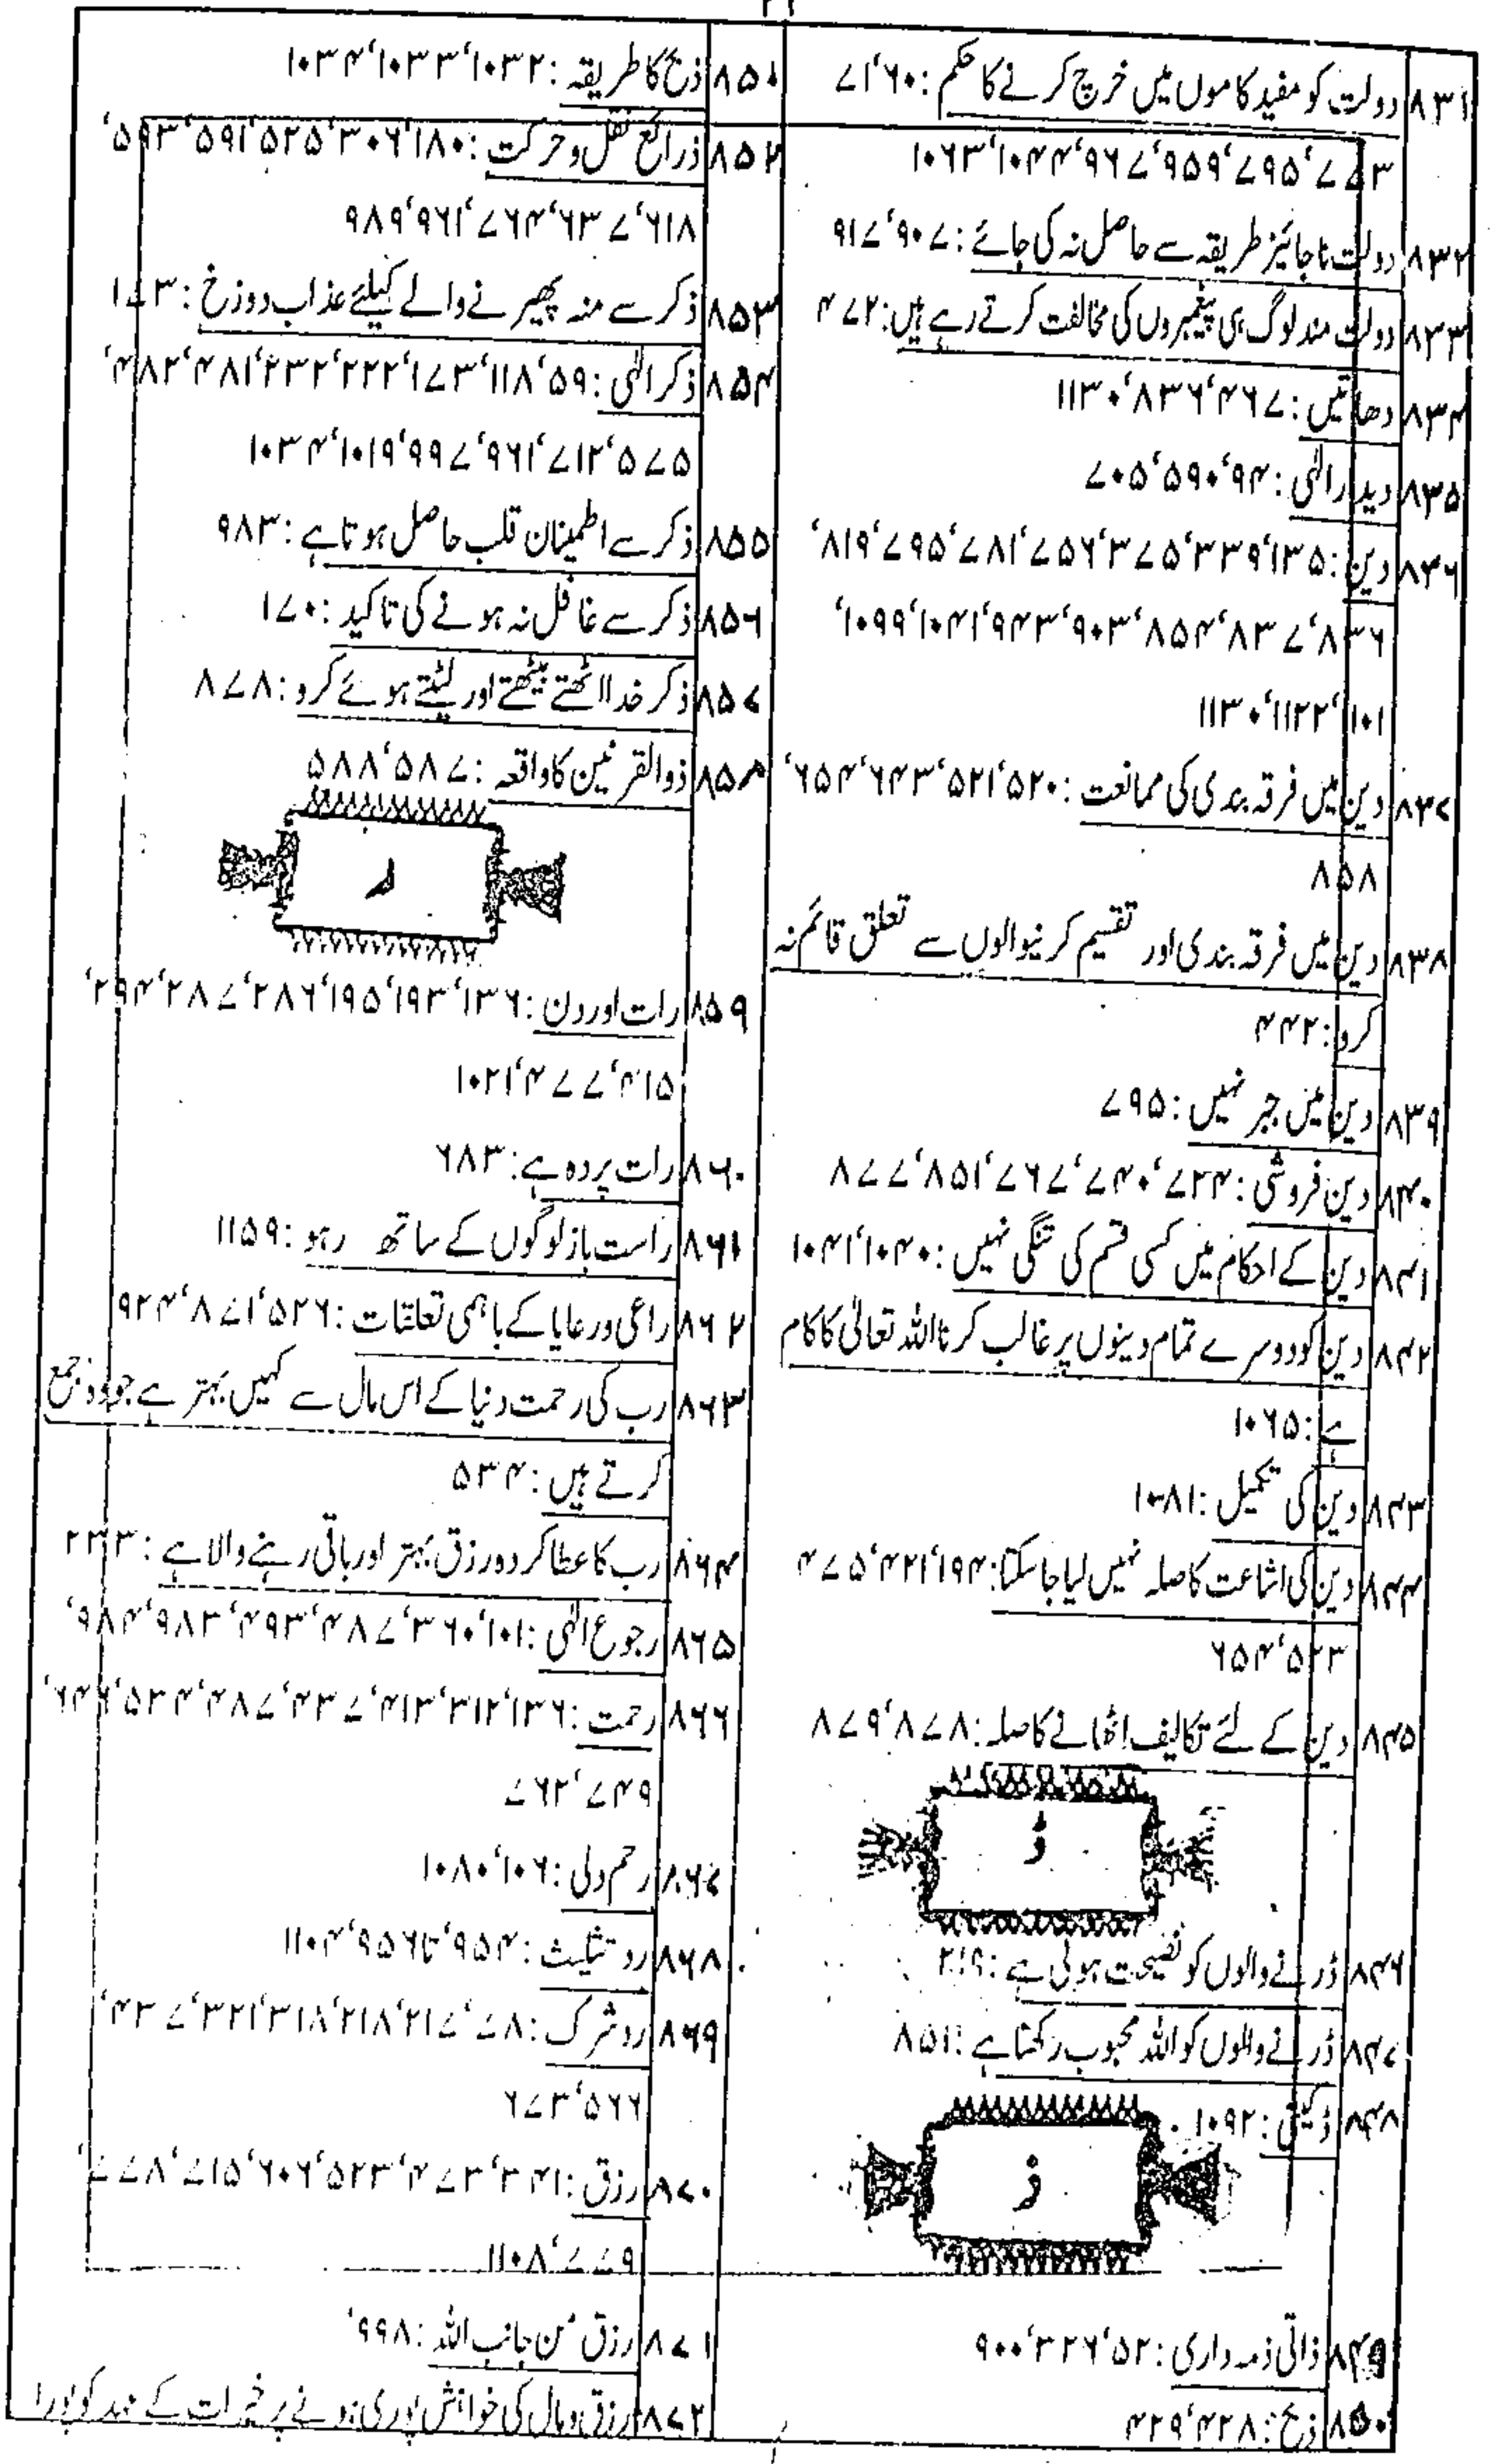 ۸۳۱ دولت کو مفید کاموں میں خرچ کرنے کا حکم: ۶۰، ۷۱
۷۷۳، ۷۹۵، ۹۵۹، ۹۶۷، ۱۰۴۴، ۱۰۶۳
۸۳۲ دولت ناجائیز طریقہ سے حاصل نہ کی جائے: ۹۰۷، ۹۱۷
۸۳۳ دولت مند لوگ ہی پیغمبروں کی مخالفت کرتے رہے ہیں: ۴۷۲
۸۳۴ دھاتیں: ۴۶۷، ۸۳۶، ۱۱۳۰
۸۳۵ دیدار الٰہی: ۹۴، ۵۹۰، ۷۰۵
۸۳۶ دین: ۱۳۵، ۳۳۹، ۳۷۵، ۷۵۶، ۷۸۱، ۷۹۵، ۸۱۹،
۸۳۶، ۸۳۷، ۸۵۴، ۹۰۳، ۹۴۳، ۱۰۴۱، ۱۰۹۹،
۱۱۰۱، ۱۱۲۲، ۱۱۳۰
۸۳۷ دین میں فرقہ بندی کی ممانعت: ۵۲۰، ۵۲۱، ۶۴۳، ۶۵۴،
۸۵۸
۸۳۸ دین میں فرقہ بندی اور تقسیم کرنیوالوں سے تعلق قائم نہ
کرو: ۴۴۲
۸۳۹ دین میں جبر نہیں: ۷۹۵
۸۴۰ دین فروشی: ۷۲۴، ۷۴۰، ۷۶۷، ۸۵۱، ۸۷۷
۸۴۱ دین کے احکام میں کسی قسم کی تنگی نہیں: ۱۰۴۰، ۱۰۴۱
۸۴۲ دین کو دوسرے تمام دینوں پر غالب کرنا اللہ تعالیٰ کا کام
ہے: ۱۰۶۵
۸۴۳ دین کی تکمیل: ۱۰۸۱
۸۴۴ دین کی اشاعت کا صلہ نہیں لیا جا سکتا: ۱۹۴، ۴۲۱، ۴۷۵
۵۲۳، ۶۵۴
۸۴۵ دین کے لئے تکالیف اٹھانے کا صلہ: ۸۷۸، ۸۷۹
ڈ
۸۴۶ ڈرنے والوں کو نصیحت ہوتی ہے: ۲۱۹
۸۴۷ ڈرنے والوں کو اللہ محبوب رکھتا ہے: ۸۵۱
۸۴۸ ڈکیتی: ۱۰۹۲
ذ
۸۴۹ ذاتی ذمہ داری: ۵۲، ۳۲۶، ۹۰۰
۸۵۰ ذبح: ۴۲۸، ۴۲۹
۸۵۱ ذبح کا طریقہ: ۱۰۳۲، ۱۰۳۳، ۱۰۳۴
۸۵۲ ذرائع نقل و حرکت: ۱۸۰، ۳۰۶، ۵۲۵، ۵۹۱، ۵۹۳،
۶۱۸، ۷۶۳، ۷۶۴، ۹۶۱، ۹۸۹
۸۵۳ ذکر سے منہ پھیرنے والے کیلئے عذاب دوزخ: ۱۷۳
۸۵۴ ذکر الٰہی: ۵۹، ۱۱۸، ۱۷۳، ۲۲۲، ۲۳۲، ۴۸۱، ۴۸۲،
۵۷۵، ۷۱۲، ۹۶۱، ۹۹۷، ۱۰۱۹، ۱۰۳۴
۸۵۵ ذکر سے اطمینان قلب حاصل ہوتا ہے: ۹۸۳
۸۵۶ ذکر سے غافل نہ ہونے کی تاکید: ۱۷۰
۸۵۷ ذکر خدا اٹھتے بیٹھتے اور لیٹتے ہوئے کرو: ۸۷۸
۸۵۸ ذوالقرنین کا واقعہ: ۵۸۷، ۵۸۸
ر
۸۵۹ رات اور دن: ۱۳۶، ۱۹۳، ۱۹۵، ۲۸۶، ۲۸۷، ۲۹۴،
۴۱۵، ۴۷۷، ۱۰۲۱
۸۶۰ رات پردہ ہے: ۶۸۳
۸۶۱ راست باز لوگوں کے ساتھ رہو: ۱۱۵۹
۸۶۲ راعی و رعایا کے باہمی تعلقات: ۵۲۶، ۸۷۱، ۹۲۴
۸۶۳ رب کی رحمت دنیا کے اس مال سے کہیں بہتر ہے جو وہ جمع
کرتے ہیں: ۵۳۴
۸۶۴ رب کا عطا کردہ رزق بہتر اور باقی رہنے والا ہے: ۲۳۳
۸۶۵ رجوع الٰہی: ۱۰۱، ۳۶۰، ۴۸۷، ۴۹۳، ۹۸۳، ۹۸۴،
۸۶۶ رحمت: ۱۳۶، ۳۱۲، ۴۱۳، ۴۳۷، ۴۸۷، ۵۳۴، ۶۴۶،
۷۴۹، ۷۶۲
۸۶۷ رحم دلی: ۱۰۶، ۱۰۸۰
۸۶۸ رد تثلیث: ۹۵۴ تا ۹۵۶، ۱۱۰۴
۸۶۹ رد شرک: ۷۸، ۲۱۷، ۲۱۸، ۳۱۸، ۳۲۱، ۴۳۷،
۵۶۶، ۶۷۳
۸۷۰ رزق: ۳۴۱، ۴۷۳، ۵۲۳، ۶۰۶، ۷۱۵، ۷۷۸،
۷۷۹، ۱۱۰۸
۸۷۱ رزق من جانب اللہ: ۹۹۸،
۸۷۲ رزق و مال کی خواہش پوری ہونے پر خیرات کے عہد کو پورا